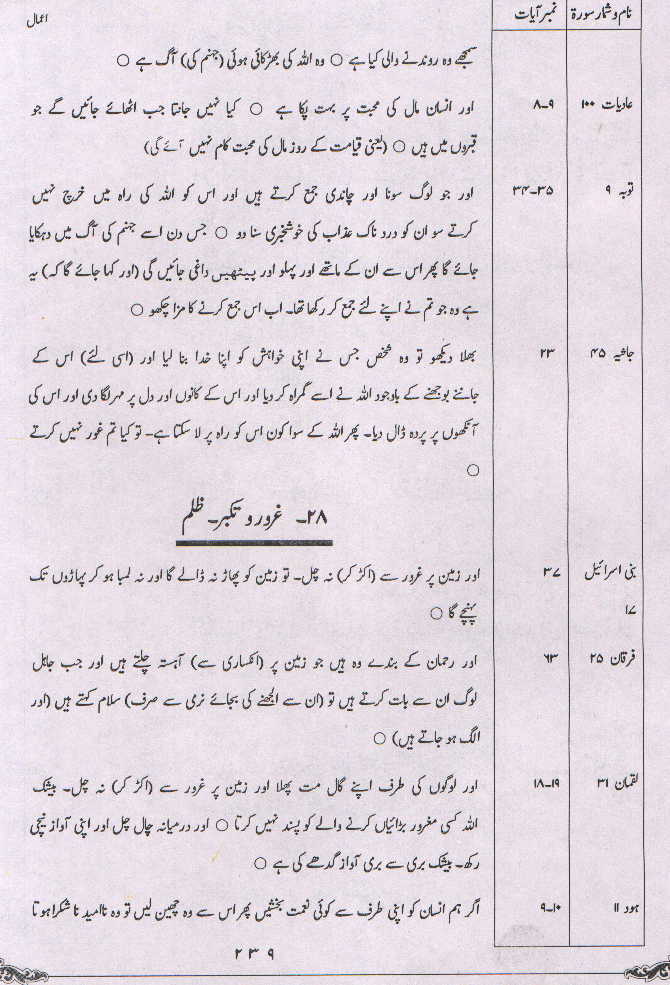 نام و شمار سورۃ نمبر آیات
اعمال
سمجھے وہ روندنے والی کیا ہے ○ وہ اللہ کی بھڑکائی ہوئی (جہنم کی) آگ ہے ○
عادیات ۱۰۰ ۹-۸ اور انسان مال کی محبت پر بہت پکا ہے ○ کیا نہیں جانتا جب اٹھائے جائیں گے جو
قبروں میں ہیں ○ (یعنی قیامت کے روز مال کی محبت کام نہیں آئے گی)
توبہ ۹ ۳۵-۳۴ اور جو لوگ سونا اور چاندی جمع کرتے ہیں اور اس کو اللہ کی راہ میں خرچ نہیں
کرتے سو ان کو درد ناک عذاب کی خوشخبری سنا دو ○ جس دن اسے جہنم کی آگ میں دہکایا
جائے گا پھر اس سے ان کے ماتھے اور پہلو اور پیٹھیں داغی جائیں گی (اور کہا جائے گا کہ) یہ
ہے وہ جو تم نے اپنے لئے جمع کر رکھا تھا۔ اب اس جمع کرنے کا مزا چکھو ○
جاشیہ ۴۵ ۲۳ بھلا دیکھو تو وہ شخص جس نے اپنی خواہش کو اپنا خدا بنا لیا اور (اسی لئے) اس کے
جاننے بوجھنے کے باوجود اللہ نے اسے گمراہ کر دیا اور اس کے کانوں اور دل پر مہر لگا دی اور اس کی
آنکھوں پر پردہ ڈال دیا۔ پھر اللہ کے سوا کون اس کو راہ پر لا سکتا ہے- تو کیا تم غور نہیں کرتے
○
۲۸۔ غرور و تکبر۔ ظلم
بنی اسرائیل ۳۷ اور زمین پر غرور سے (اکڑ کر) نہ چل۔ تو زمین کو پھاڑ نہ ڈالے گا اور نہ لمبا ہو کر پہاڑوں تک
۱۷ پہنچے گا ○
فرقان ۲۵ ۶۳ اور رحمان کے بندے وہ ہیں جو زمین پر (انکساری سے) آہستہ چلتے ہیں اور جب جاہل
لوگ ان سے بات کرتے ہیں تو (ان سے الجھنے کی بجائے نرمی سے صرف) سلام کہتے ہیں (اور
الگ ہو جاتے ہیں) ○
لقمان ۳۱ ۱۹-۱۸ اور لوگوں کی طرف اپنے گال مت پھلا اور زمین پر غرور سے (اکڑ کر) نہ چل۔ بیشک
اللہ کسی مغرور بڑائیاں کرنے والے کو پسند نہیں کرتا ○ اور درمیانہ چال چل اور اپنی آواز نیچی
رکھ۔ بیشک بری سے بری آواز گدھے کی ہے ○
ہود ۱۱ ۱۰-۹ اگر ہم انسان کو اپنی طرف سے کوئی نعمت بخشیں پھر اس سے وہ چھین لیں تو وہ ناامید ناشکرا ہوتا
۲۳۹